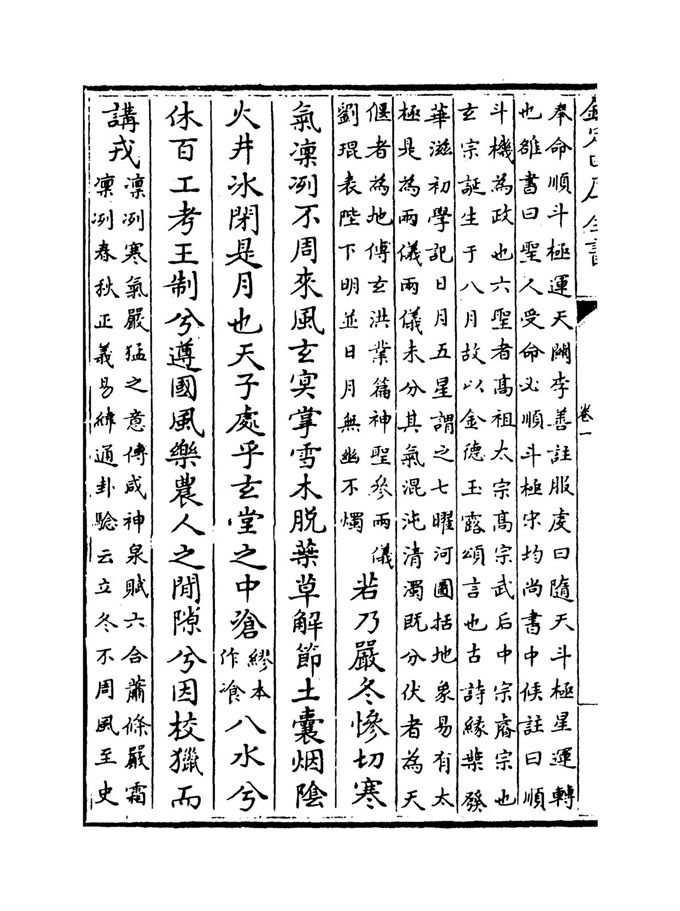 欽定四庫全書
卷一
奉命順斗極運天關李善註服虔曰隨天斗極星運轉
也雒書曰聖人受命必順斗極宋均尚書中候註曰順
斗機為政也六聖者髙祖太宗髙宗武后中宗睿宗也
玄宗誕生于八月故以金徳玉露頌言也古詩緣葉發
華滋初學記日月五星謂之七曜河圖括地象易有太
極是為兩儀兩儀未分其氣混沌清濁既分伏者為天
偃者為地傅玄洪業篇神聖參兩儀
劉琨表陛下明並日月無幽不燭
若乃嚴冬慘切寒
氣凜冽不周來風玄冥掌雪木脱葉草解節土囊烟陰
火井冰閉是月也天子處乎玄堂之中滄繆本作飡八水兮
休百工考王制兮遵國風樂農人之閒隙兮因校獵而
講戎
凜冽寒氣嚴猛之意傅咸神泉賦六合蕭條嚴霜
凜冽春秋正義易緯通卦驗云立冬不周風至史